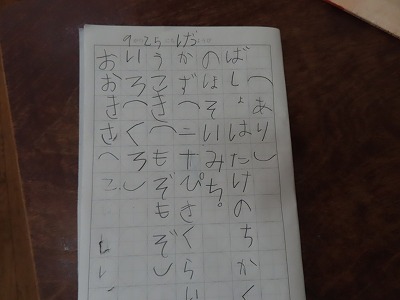 （あり）
ばしょはたけのちかく
のほそいみち。
かず（二十ぴきくらい
うごき（もぞもぞ）
いろ（くろ）
おおきさ（